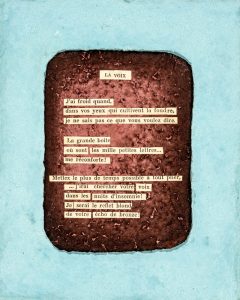 LA VOIX
J'ai froid quand,
dans vos yeux qui cultivent la foudre,
je ne sais pas ce que vous voulez dire.
La grande boîte
où sont les mille petites lettres...
me réconforte!
Mettez le plus de temps possible à tout plier,
... j'irai chercher votre voix
dans les nuits d'insomnie!
Je serai le reflet blond
de votre écho de bronze!